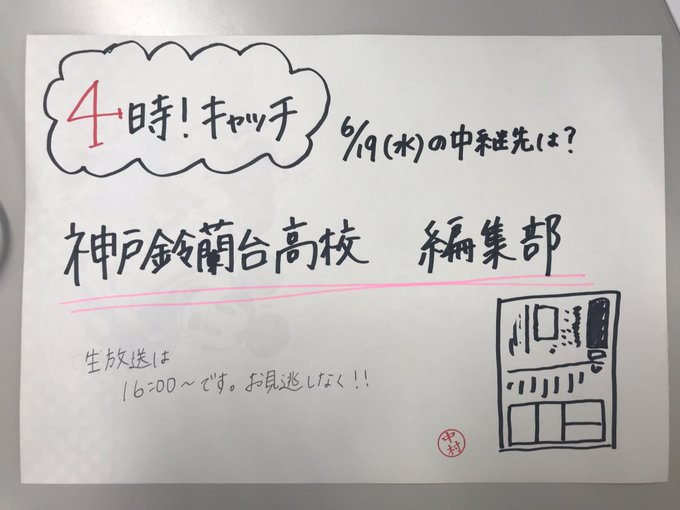 4時!キャッチ
6/19(水)の中継先は?
神戸鈴蘭台高校 編集部
生放送は
16:00~です。お見逃しなく!!
中村